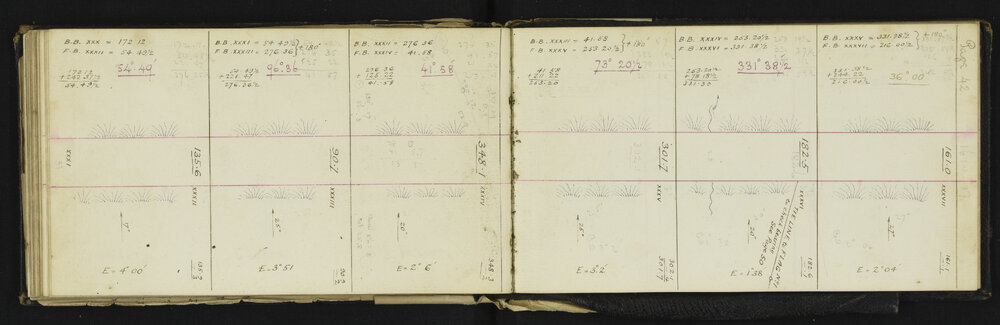 B.B. XXX = 172.12
F.B. XXXII = 54.49½
172.12
+242.37½
54.49½
54°.49'
XXXI
135.6
XXXII
9°
E = 4°00'
135.3
B.B. XXXI = 54.49½
F.B. XXXIII = 276.36
+180°
54.49½
+221.47
276.36½
96°.36
90.7
XXXIII
25°
E = 3°51
B.B. XXXII = 276.36
F.B. XXXIV = 41.58
276.36
+125.22
41.58
41°.58'
348.1
XXXIV
20°
E = 2°6'
348.3
B.B. XXXIII = 41.58
F.B. XXXV = 253.20½
+180
41.58
+211.22
253.20
73° 20½
301.7
XXXV
25°
E = 3°2'
302.2
301.7
B.B. XXXIV = 253.20½
F.B. XXXVI = 331.38½
253.20½
+78.18½
331.38½
182.5
XXXVI
TIE LINE to FLAG No 1
to check bearing
See Page 50
20°
E = 1°38
182.6
B.B. XXXV = 331.38½
F.B. XXXVII = 216.00½
+180°
216.00½
36° 00'
Pages 42
161.0
XXXVII
E = 2°04'
161.1